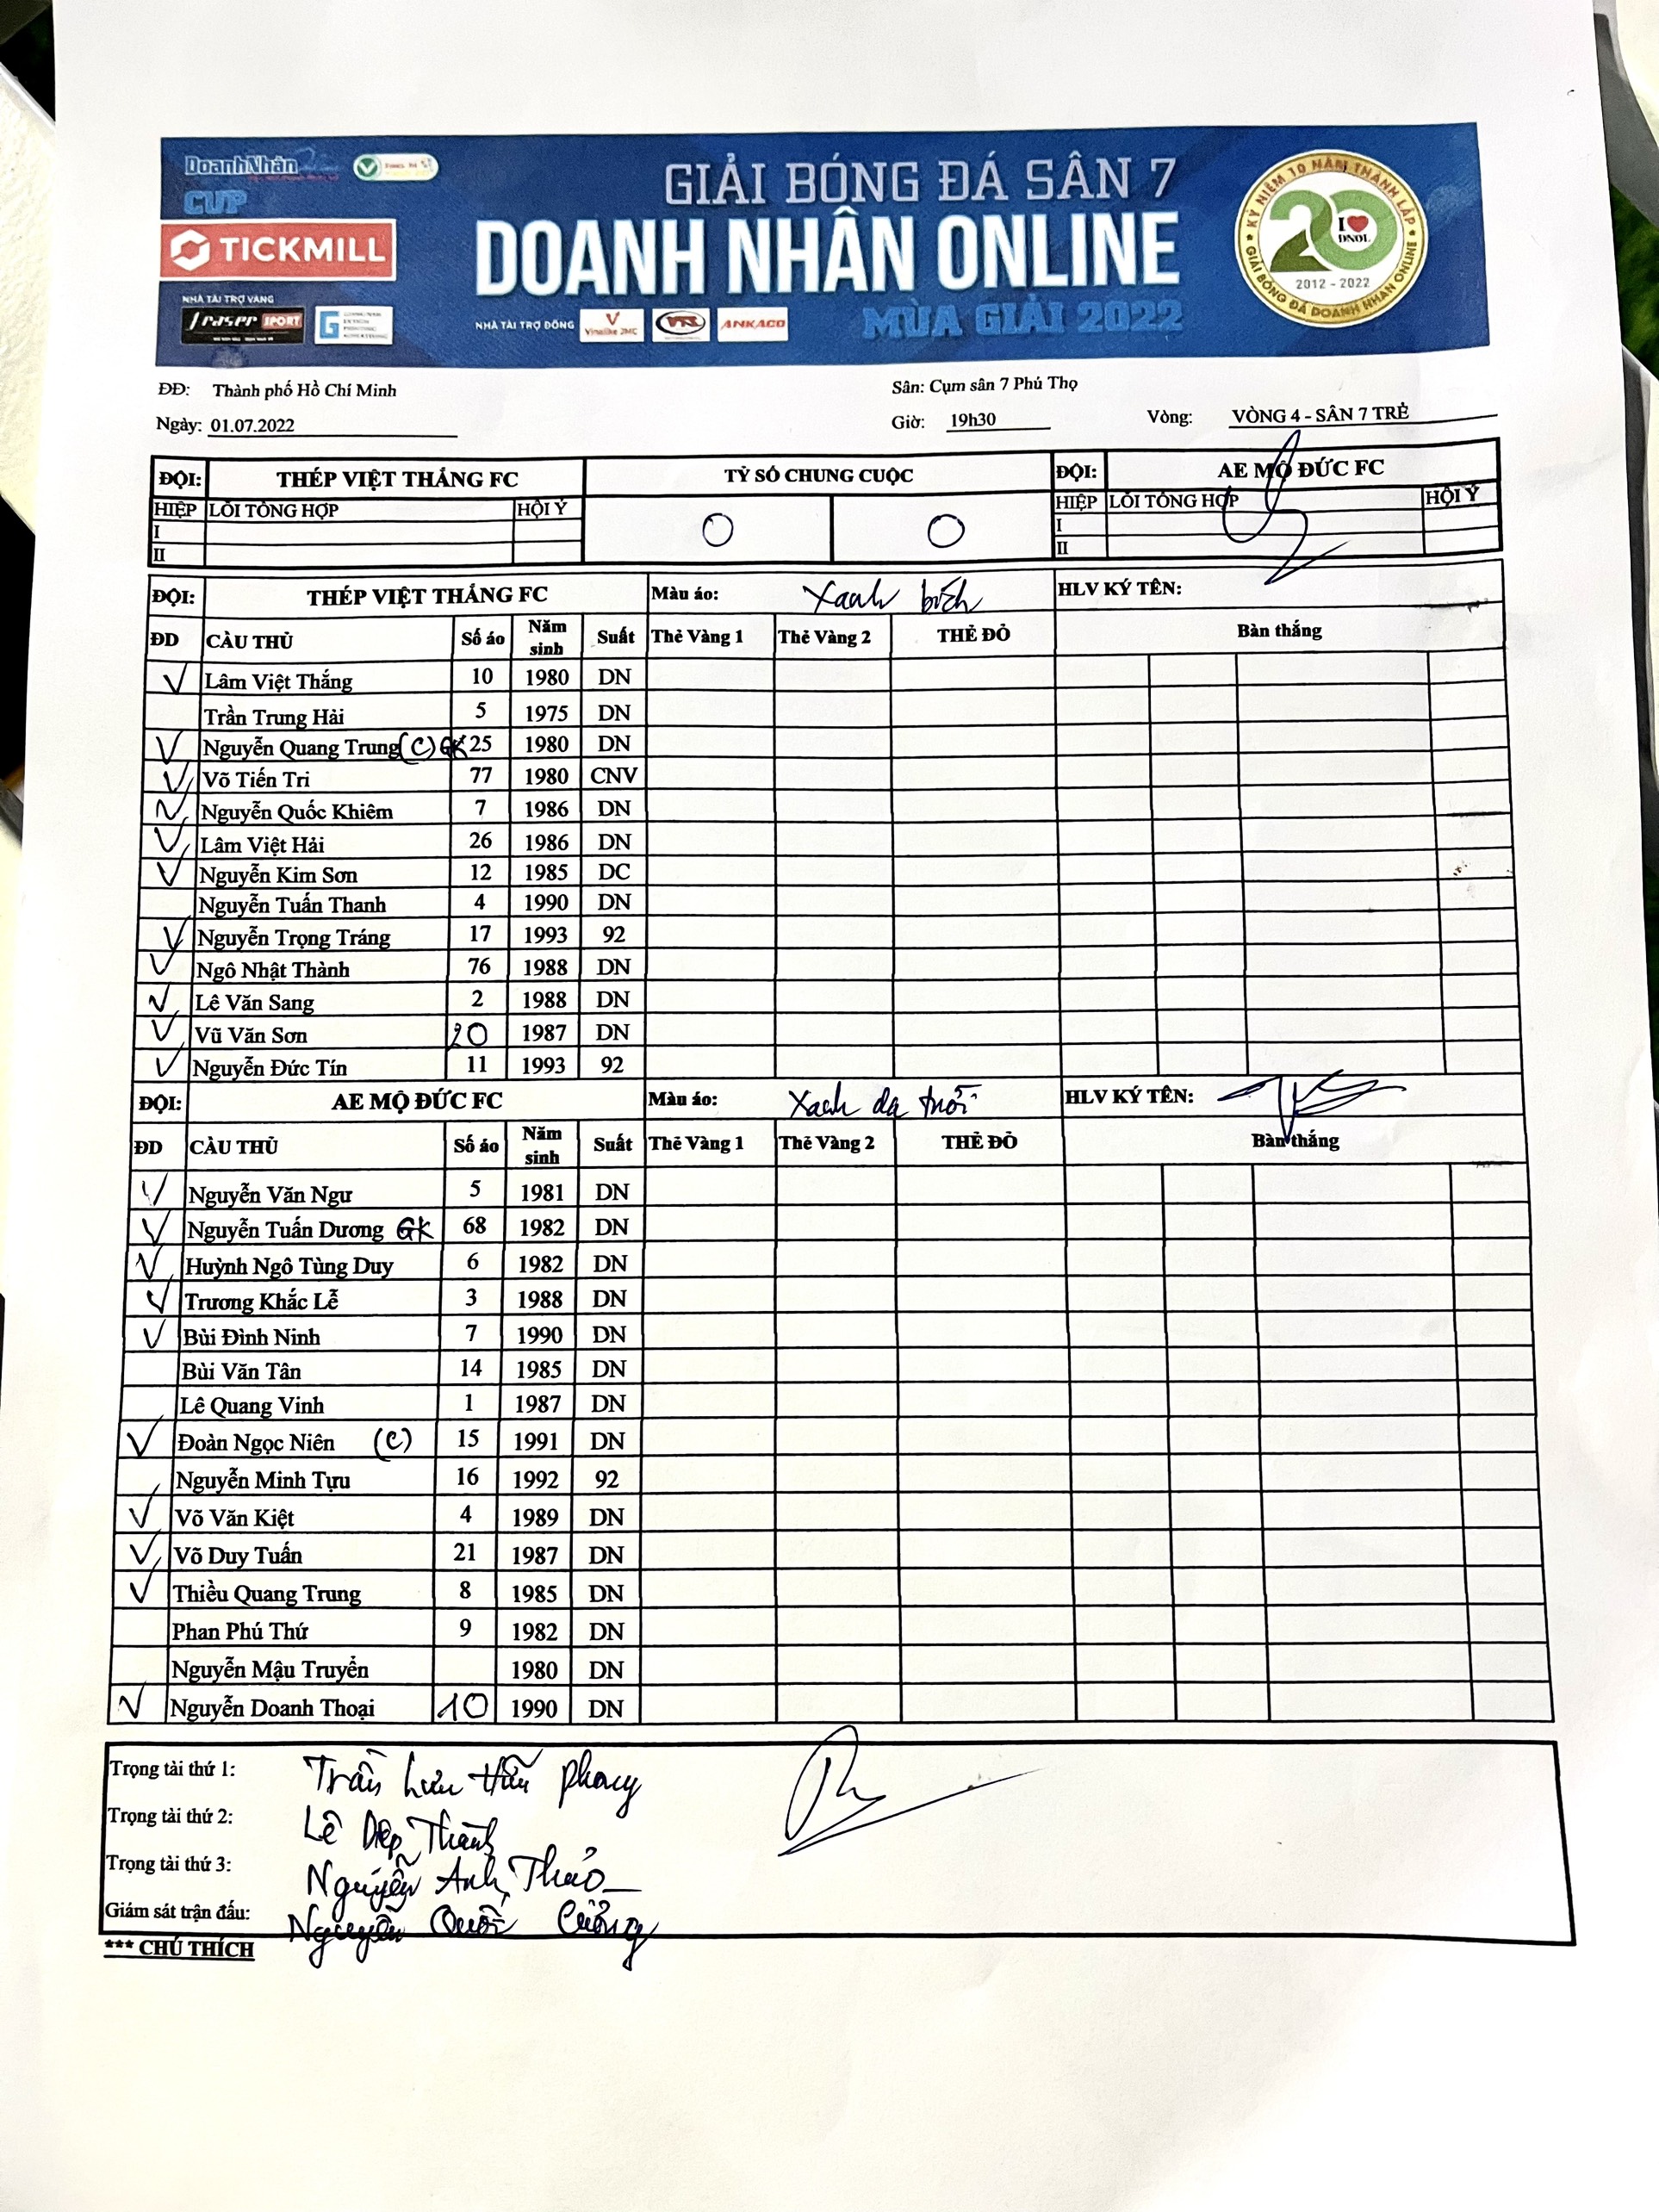 DoanhNhân
CUP
TICKMILL
NHÀ TÀI TRỢ VÀNG
SPORT
GIẢI BÓNG ĐÁ SÂN 7
DOANH NHÂN ONLINE
NHÀ TÀI TRỢ ĐỒNG
Vinalike 2MC
VRL
ANKACO
MÙA GIẢI 2022
KỶ NIỆM 10 NĂM THÀNH LẬP
I ❤ DNOL
2012 - 2022
GIẢI BÓNG ĐÁ DOANH NHÂN ONLINE
ĐĐ: Thành phố Hồ Chí Minh Sân: Cụm sân 7 Phú Thọ
Ngày: 01.07.2022 Giờ: 19h30 Vòng: VÒNG 4 - SÂN 7 TRẺ
ĐỘI: THÉP VIỆT THẮNG FC TỶ SỐ CHUNG CUỘC ĐỘI: AE MỘ ĐỨC FC
HIỆP LỖI TỔNG HỢP HỘI Ý 0 0 HIỆP LỖI TỔNG HỢP HỘI Ý
I I
II II
ĐỘI: THÉP VIỆT THẮNG FC Màu áo: Xanh bích HLV KÝ TÊN:
ĐD CẦU THỦ Số áo Năm sinh Suất Thẻ Vàng 1 Thẻ Vàng 2 THẺ ĐỎ Bàn thắng
V Lâm Việt Thắng 10 1980 DN
Trần Trung Hải 5 1975 DN
V Nguyễn Quang Trung (C) GK 25 1980 DN
V Võ Tiến Tri 77 1980 CNV
V Nguyễn Quốc Khiêm 7 1986 DN
V Lâm Việt Hải 26 1986 DN
V Nguyễn Kim Sơn 12 1985 DC
Nguyễn Tuấn Thanh 4 1990 DN
V Nguyễn Trọng Tráng 17 1993 92
V Ngô Nhật Thành 76 1988 DN
V Lê Văn Sang 2 1988 DN
V Vũ Văn Sơn 20 1987 DN
V Nguyễn Đức Tín 11 1993 92
ĐỘI: AE MỘ ĐỨC FC Màu áo: Xanh da trời HLV KÝ TÊN:
ĐD CẦU THỦ Số áo Năm sinh Suất Thẻ Vàng 1 Thẻ Vàng 2 THẺ ĐỎ Bàn thắng
V Nguyễn Văn Ngư 5 1981 DN
V Nguyễn Tuấn Dương GK 68 1982 DN
V Huỳnh Ngô Tùng Duy 6 1982 DN
V Trương Khắc Lễ 3 1988 DN
V Bùi Đình Ninh 7 1990 DN
Bùi Văn Tân 14 1985 DN
Lê Quang Vinh 1 1987 DN
V Đoàn Ngọc Niên (C) 15 1991 DN
Nguyễn Minh Tựu 16 1992 92
V Võ Văn Kiệt 4 1989 DN
V Võ Duy Tuấn 21 1987 DN
V Thiều Quang Trung 8 1985 DN
Phan Phú Thứ 9 1982 DN
Nguyễn Mậu Truyển 1980 DN
V Nguyễn Doanh Thoại 10 1990 DN
Trọng tài thứ 1: Trần Lưu Hữu Phong
Trọng tài thứ 2: Lê Diệp Thành
Trọng tài thứ 3: Nguyễn Anh Thảo
Giám sát trận đấu: Nguyễn Quốc Cường
*** CHÚ THÍCH